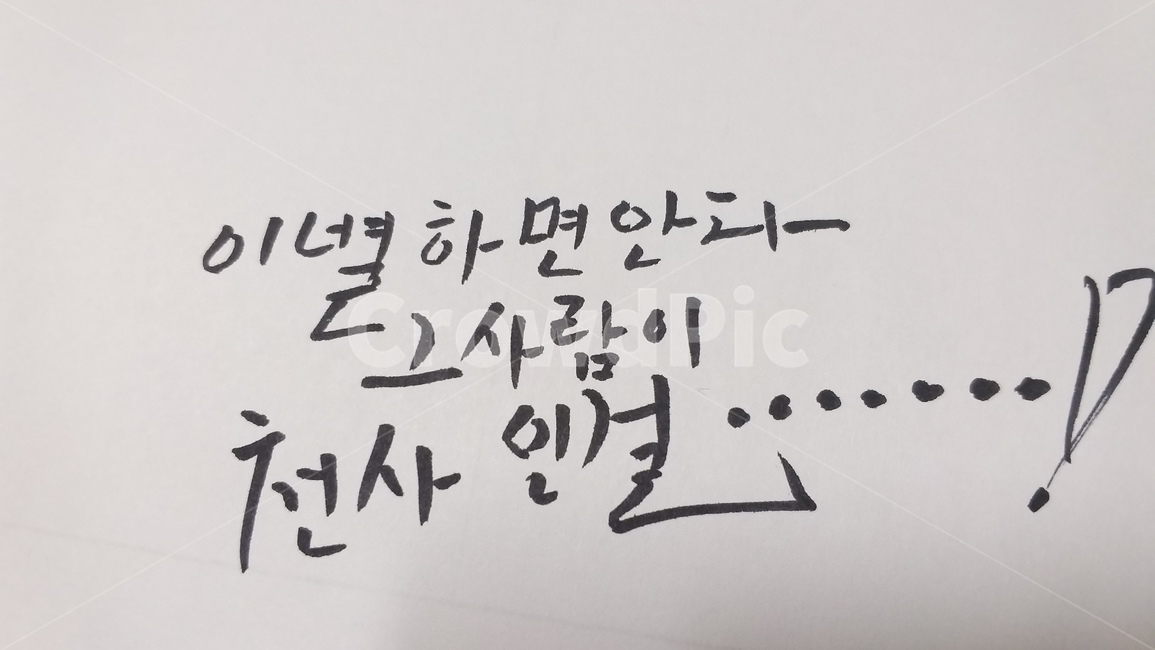 이별하면안돼
그사람이
천사인걸.......!
CrowdPic